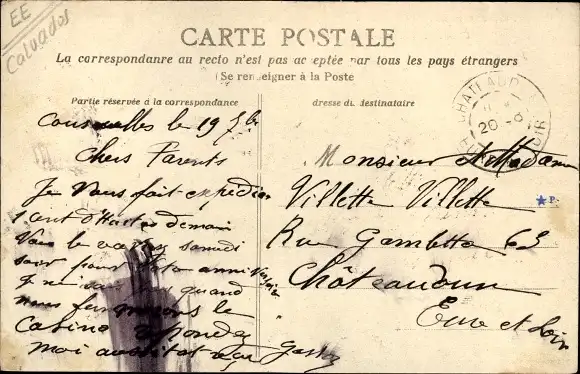 EE
Calvados
CARTE POSTALE
La correspondanre au recto n'est pas acceptée par tous les pays étrangers
(Se renseigner à la Poste
Partie réservée à la correspondance
dresse du destinataire
CHATEAUD
20 -6
EURE
OIR
Courseulles le 19 7bre
Chers Parents
Je vous fait expedier
1 cent d'Huitres demain
Vous le aurez samedi
soir pour anniversaire
Je ne quand
nous fermerons le
Casino repondez
moi aussitot reçu Gaston
Monsieur et Madame
Villette Villette
Rue Gambetta 63
Châteaudun
Eure et Loir
P.